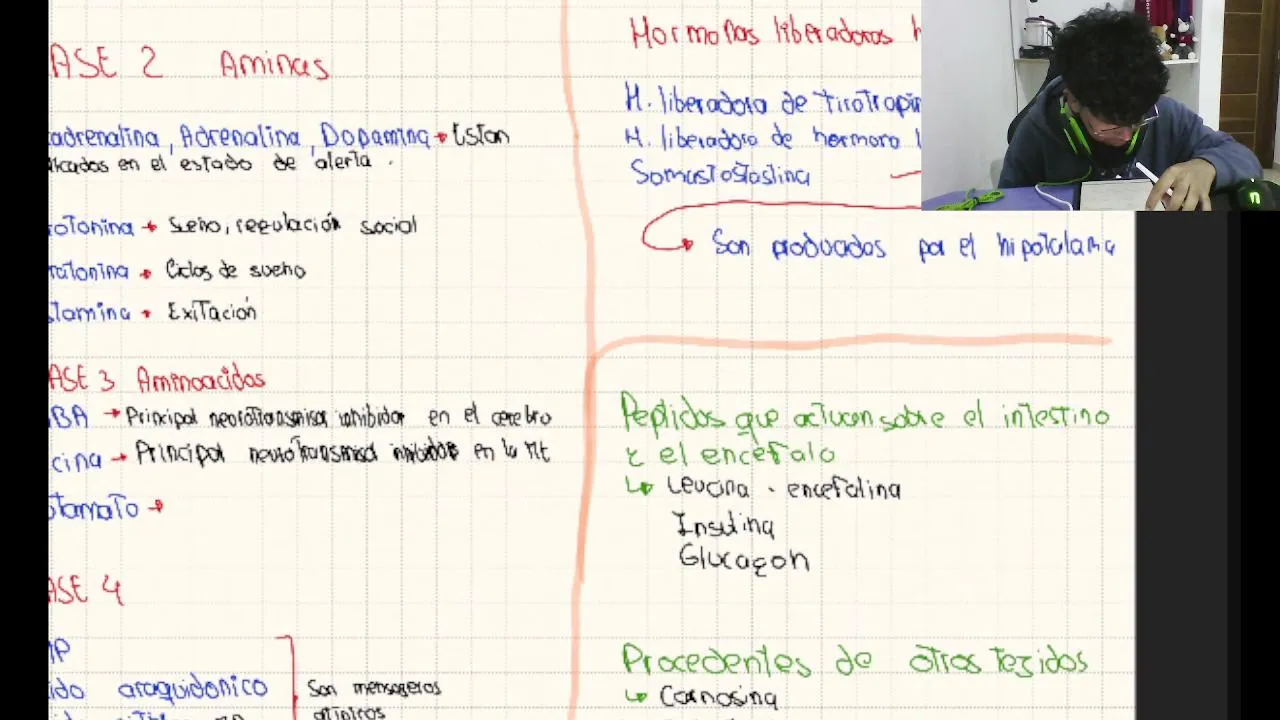 ASE 2 Aminas
adrenalina, Adrenalina, Dopamina → Estan
licados en el estado de alerta.
rotonina → Sueño, regulación social
ratonina → Ciclos de sueño
stamina → Exitación
ASE 3 Aminoacidos
BA → Principal neurotransmisor inhibidor en el cerebro
cina → Principal neurotransmisor inhibidor en la ME
utamato →
ASE 4
MP
ido araquidonico
Son mensageros
atipicos
Hormonas liberadoras h
H. liberadora de tirotropin
H. liberadora de hormona l
Somastostastina
Son producidos por el hipotalamo
Peptidos que actuan sobre el intestino
y el encefalo
↳ Leucina - encefalina
Insulina
Glucagon
Procedentes de otros tegidos
↳ Carnosina